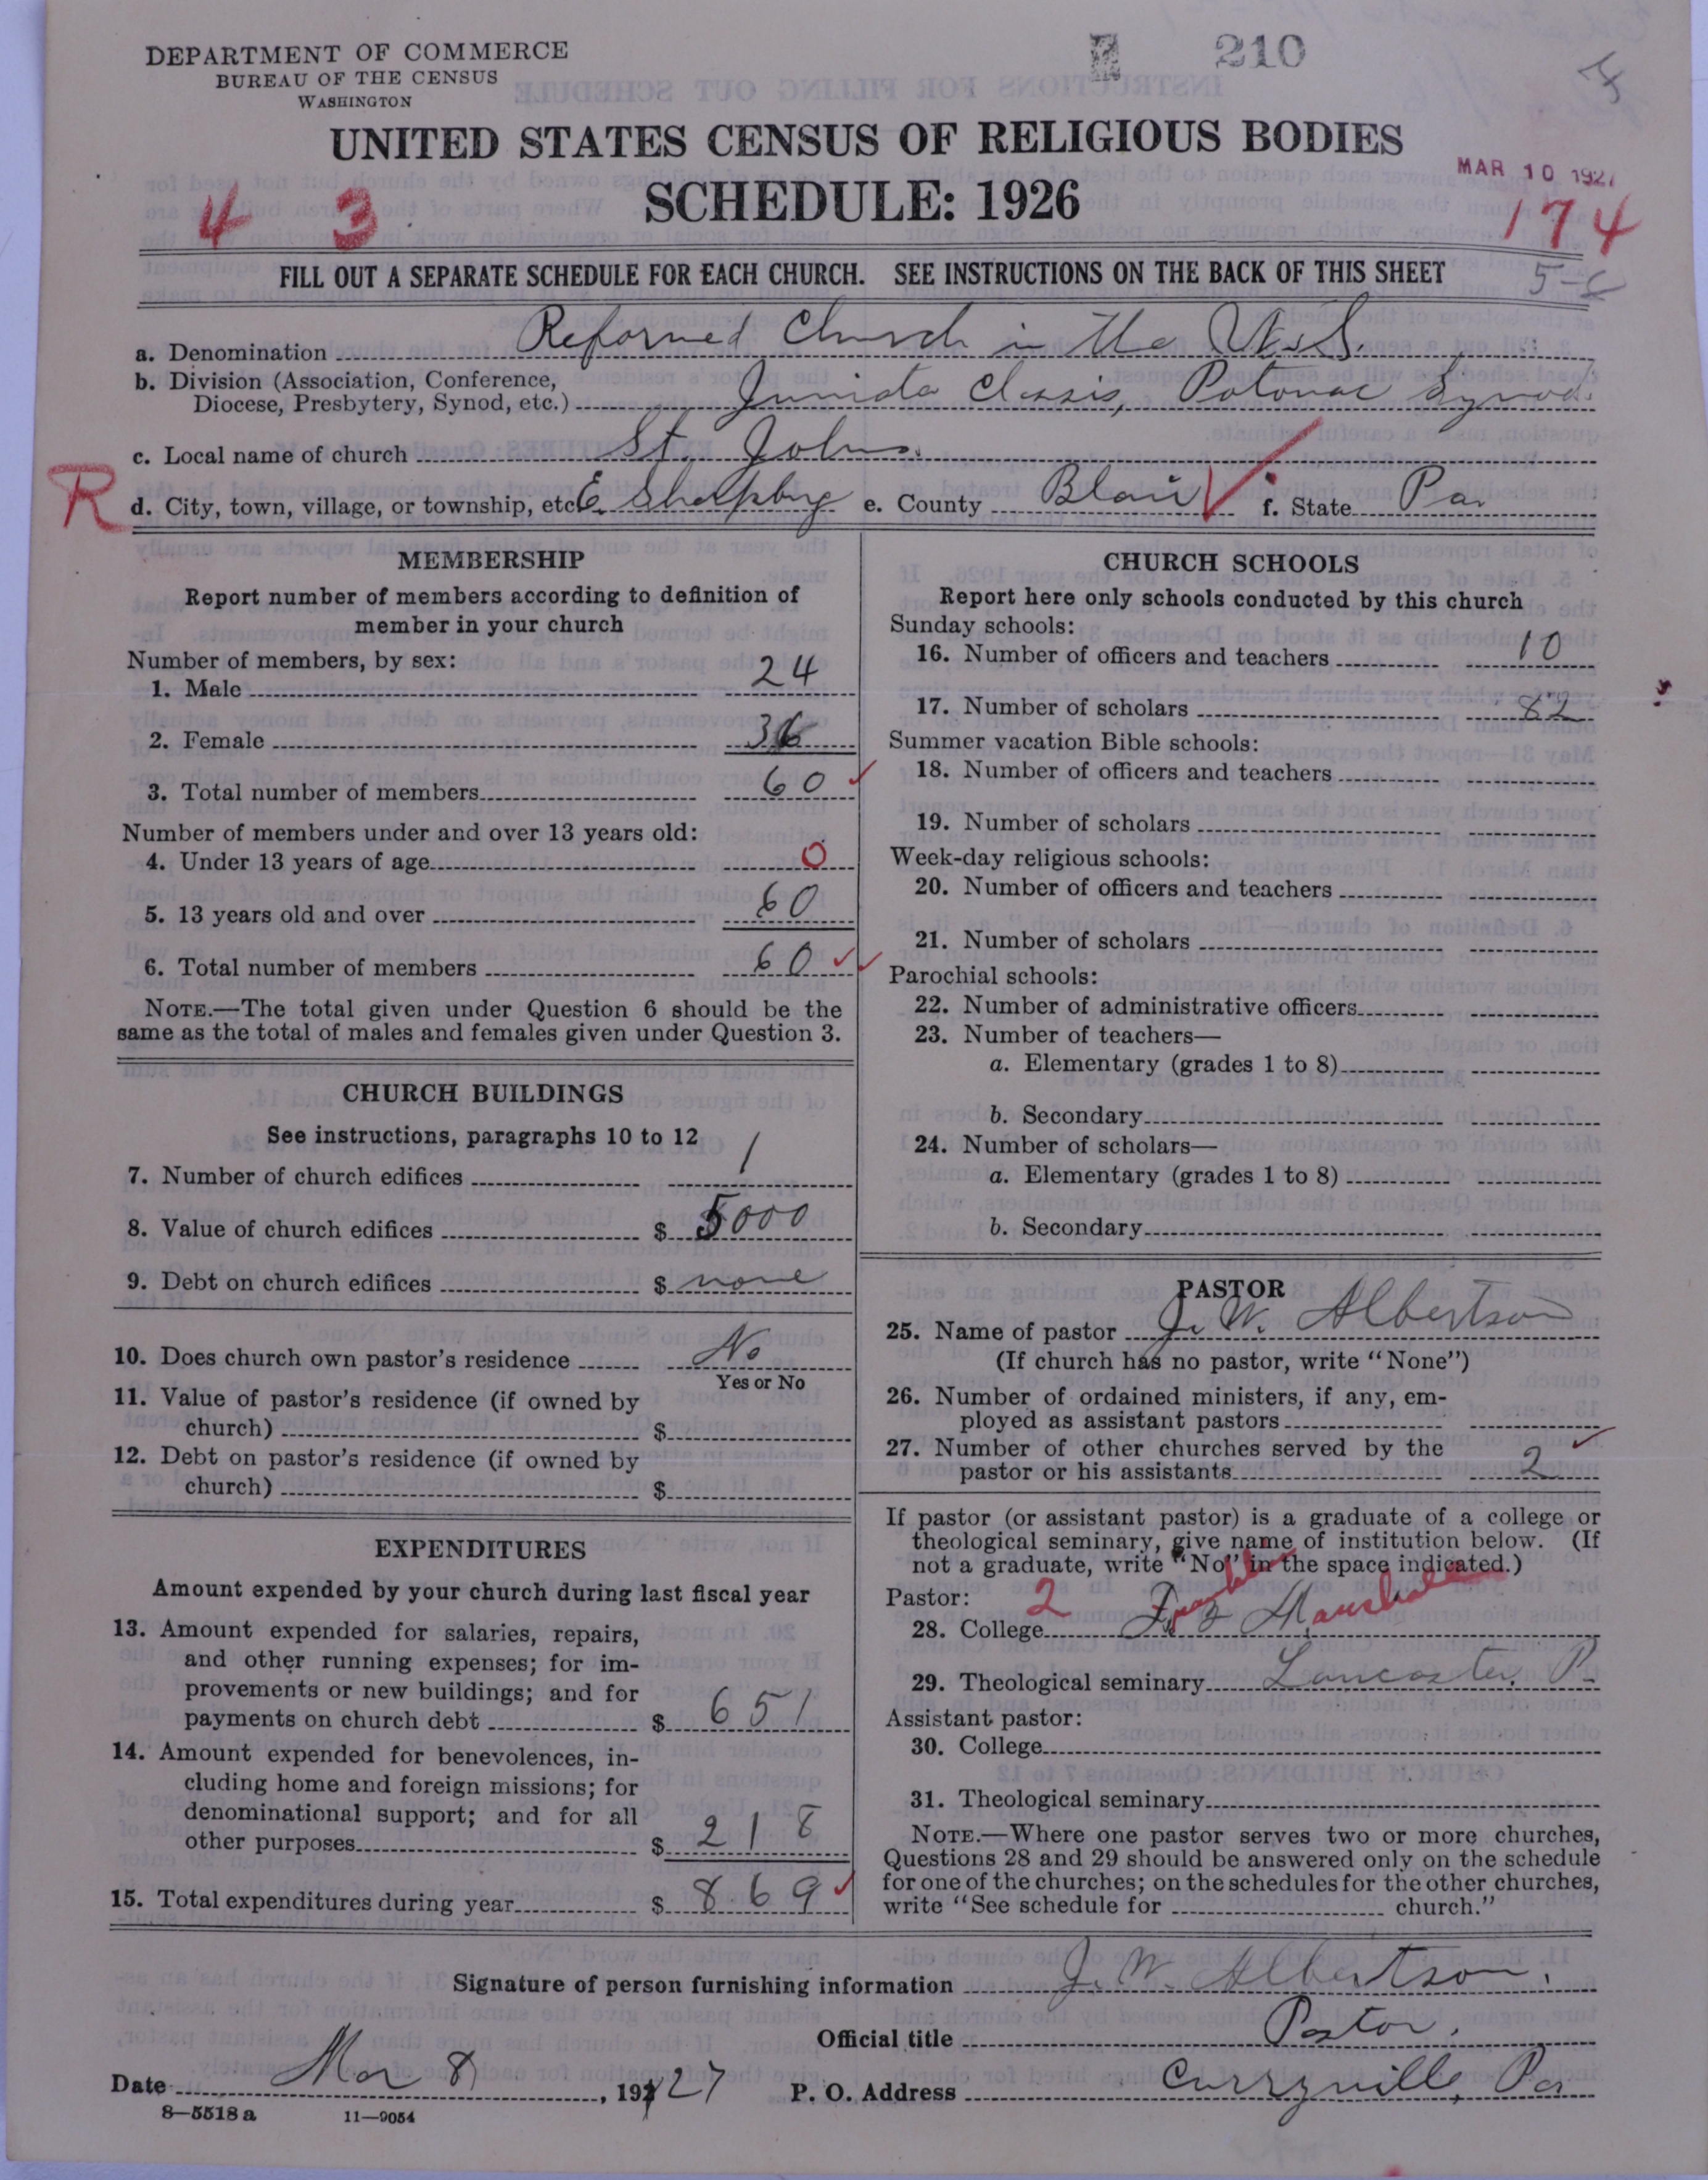 DEPARTMENT OF COMMERCE
BUREAU OF THE CENSUS
WASHINGTON
210
UNITED STATES CENSUS OF RELIGIOUS BODIES
SCHEDULE: 1926
MAR 10 1927
4 3
174
FILL OUT A SEPARATE SCHEDULE FOR EACH CHURCH. SEE INSTRUCTIONS ON THE BACK OF THIS SHEET
a. Denomination Reformed Church in the U.S.
b. Division (Association, Conference,
Diocese, Presbytery, Synod, etc.) Juniata Classis, Potomac Synod.
c. Local name of church St. Johns.
R
d. City, town, village, or township, etc. E. Sharpsburg e. County Blair f. State Pa.
MEMBERSHIP
Report number of members according to definition of
member in your church
Number of members, by sex:
1. Male 24
2. Female 36
3. Total number of members 60
Number of members under and over 13 years old:
4. Under 13 years of age 0
5. 13 years old and over 60
6. Total number of members 60
NOTE.—The total given under Question 6 should be the
same as the total of males and females given under Question 3.
CHURCH BUILDINGS
See instructions, paragraphs 10 to 12
7. Number of church edifices 1
8. Value of church edifices $ 5000
9. Debt on church edifices $ none
10. Does church own pastor's residence No
Yes or No
11. Value of pastor's residence (if owned by
church) $
12. Debt on pastor's residence (if owned by
church) $
EXPENDITURES
Amount expended by your church during last fiscal year
13. Amount expended for salaries, repairs,
and other running expenses; for im-
provements or new buildings; and for
payments on church debt $ 651
14. Amount expended for benevolences, in-
cluding home and foreign missions; for
denominational support; and for all
other purposes $ 218
15. Total expenditures during year $ 869
CHURCH SCHOOLS
Report here only schools conducted by this church
Sunday schools:
16. Number of officers and teachers 10
17. Number of scholars 82
Summer vacation Bible schools:
18. Number of officers and teachers
19. Number of scholars
Week-day religious schools:
20. Number of officers and teachers
21. Number of scholars
Parochial schools:
22. Number of administrative officers
23. Number of teachers—
a. Elementary (grades 1 to 8)
b. Secondary
24. Number of scholars—
a. Elementary (grades 1 to 8)
b. Secondary
PASTOR
25. Name of pastor J. W. Albertson
(If church has no pastor, write "None")
26. Number of ordained ministers, if any, em-
ployed as assistant pastors
27. Number of other churches served by the
pastor or his assistants 2
If pastor (or assistant pastor) is a graduate of a college or
theological seminary, give name of institution below. (If
not a graduate, write "No" in the space indicated.)
Pastor: 2
28. College Franklin & Marshall
29. Theological seminary Lancaster, Pa
Assistant pastor:
30. College
31. Theological seminary
NOTE.—Where one pastor serves two or more churches,
Questions 28 and 29 should be answered only on the schedule
for one of the churches; on the schedules for the other churches,
write "See schedule for church."
Signature of person furnishing information J. W. Albertson.
Official title Pastor.
Date Mar 8, 1927 P. O. Address Curryville, Pa
8—5518 a 11—9054